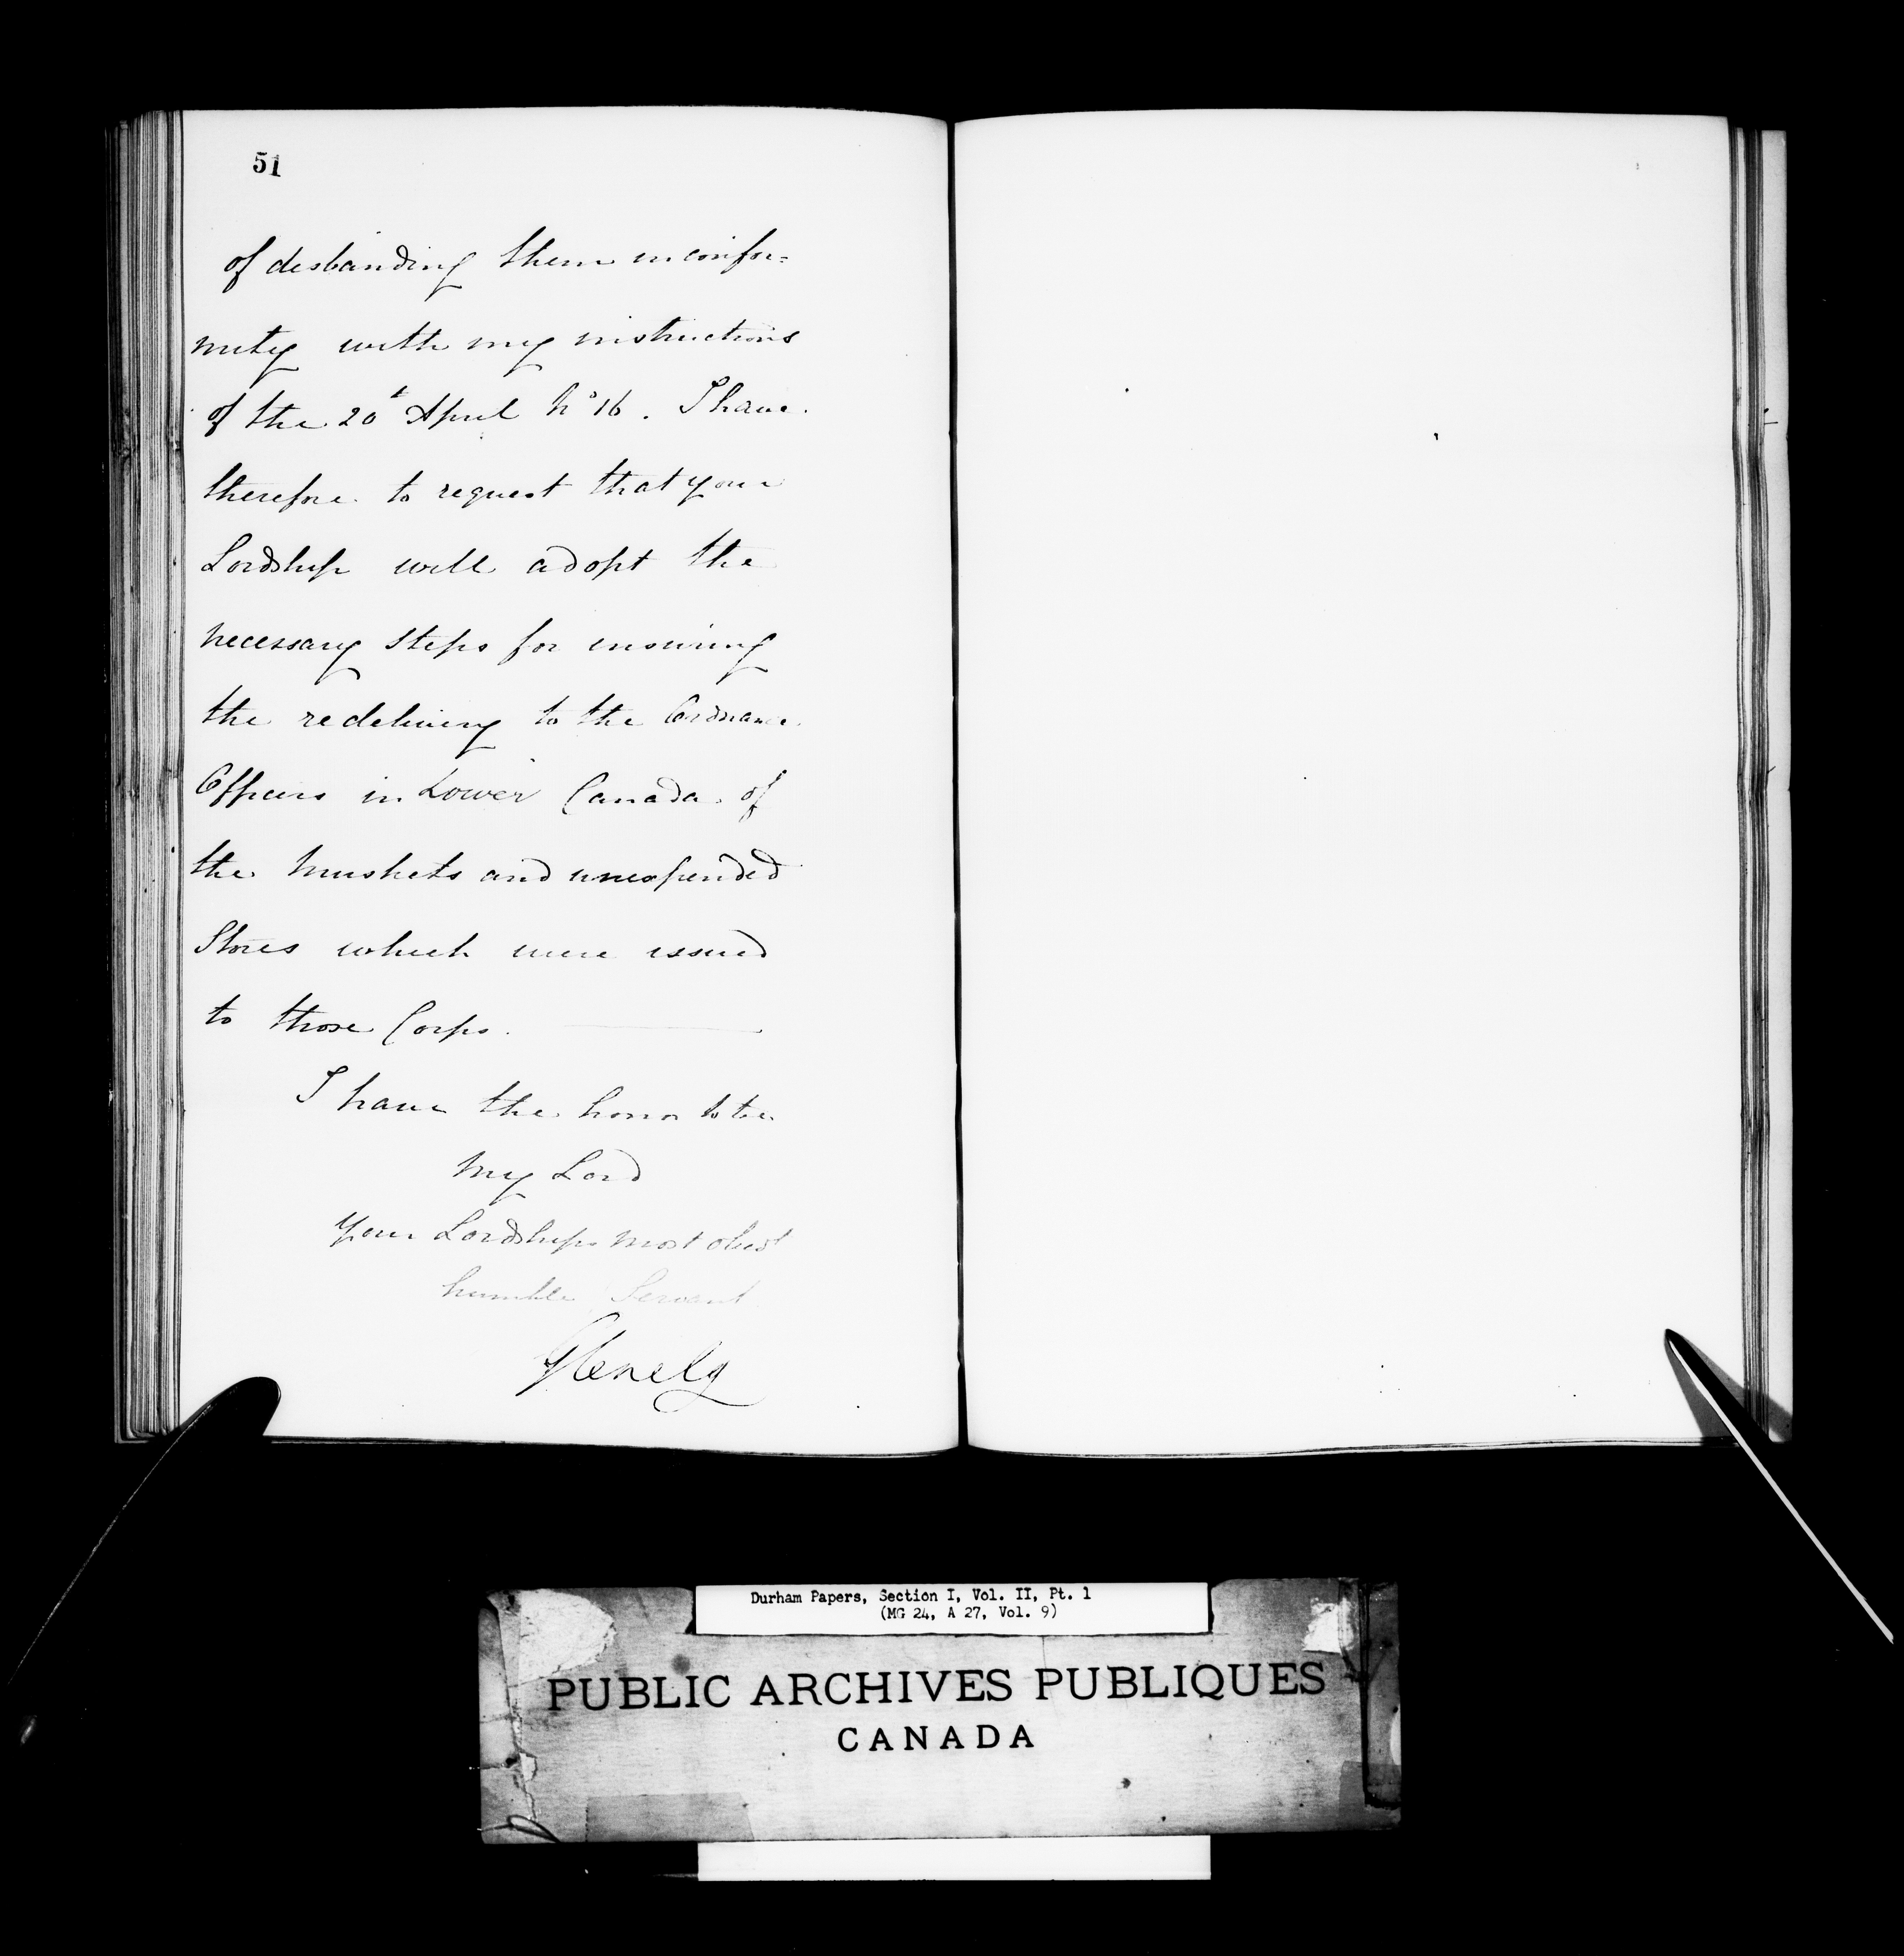 51
of disbanding them in confor=
mity with my instructions
of the 20t April No 16. I have
therefore to request that your
Lordship will adopt the
necessary steps for insuring
the redelivery to the Ordnance
Officers in Lower Canada of
the Muskets and unexpended
Stores which were issued
to those Corps.
I have the honor to be
My Lord
Your Lordships most obedt
humble Servant
Glenelg
Durham Papers, Section I, Vol. II, Pt. 1
(MG 24, A 27, Vol. 9)
PUBLIC ARCHIVES PUBLIQUES
CANADA